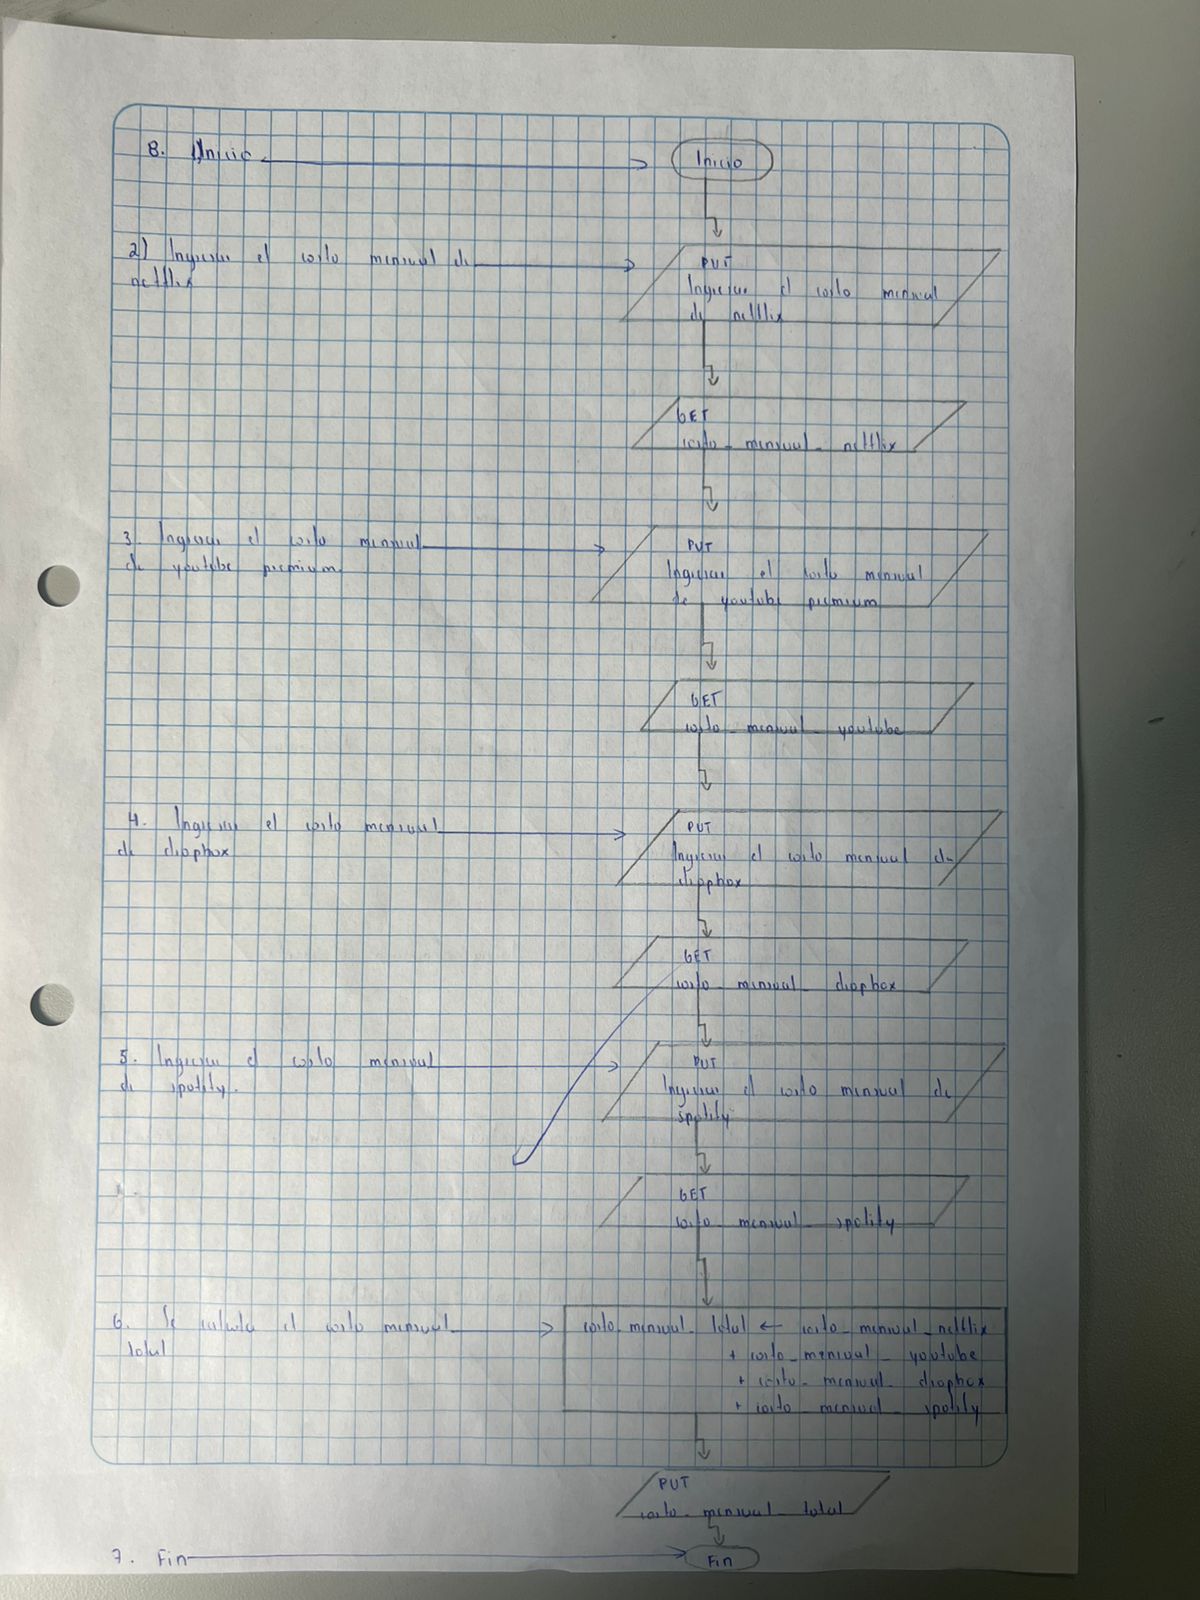 8. Inicio
Inicio
2) Ingresar el costo mensual de
netflix
PUT
Ingresar el costo mensual
de netflix
GET
costo_mensual_netflix
3. Ingresar el costo mensual
de youtube premium
PUT
Ingresar el costo mensual
de youtube premium
GET
costo_mensual_youtube
4. Ingresar el costo mensual
de dropbox
PUT
Ingresar el costo mensual de
dropbox
GET
costo_mensual_dropbox
5. Ingresar el costo mensual
de spotify.
PUT
Ingresar el costo mensual de
spotify
GET
costo_mensual_spotify
6. Se calcula el costo mensual
total
costo_mensual_total ← costo_mensual_netflix
+ costo_mensual_youtube
+ costo_mensual_dropbox
+ costo_mensual_spotify
PUT
costo_mensual_total
7. Fin
Fin